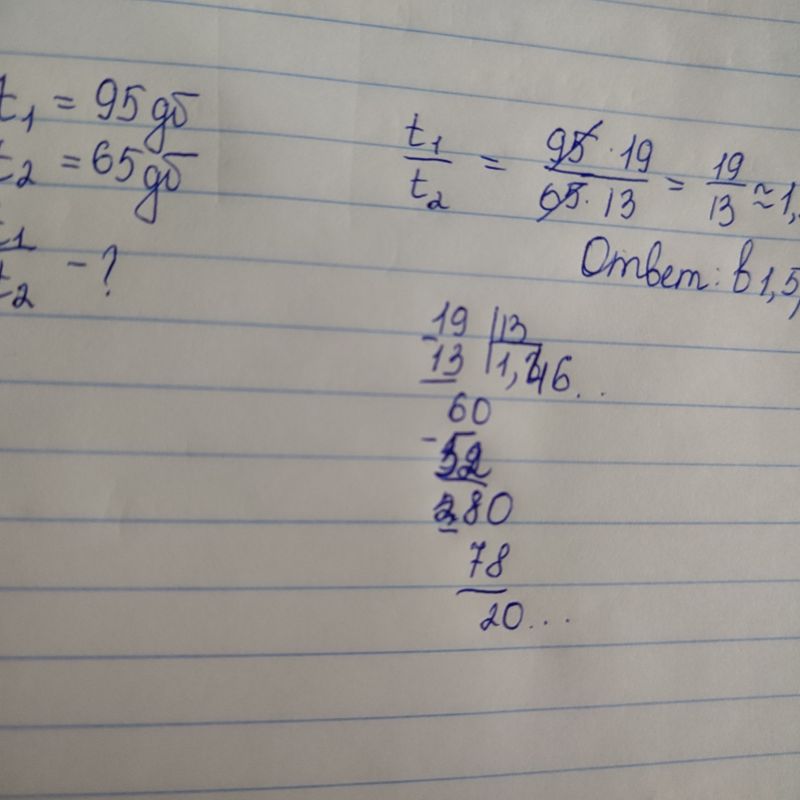 t₁ = 95 дб
t₂ = 65 дб
t₁/t₂ - ?
t₁/t₂ = 95 · 19 / 65 · 13 = 19/13 ≈ 1,
Ответ: в 1,5
19 | 13
- 13 | 1,46...
60
- 52
80
78
20...